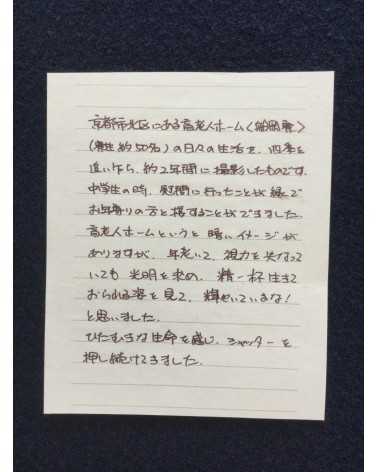 京都市北区にある盲老人ホーム〈船岡寮〉
(寮生約50名)の日々の生活を、四季を
追い乍ら、約2年間に撮影したものです。
中学生の時、慰問に行ったことが縁で
お年寄りの方と接することができました。
盲老人ホームというと暗いイメージが
ありますが、年老いて、視力を失なって
いても光明を求め、精一杯生きて
おられる姿を見て、輝やいているな!
と思いました。
ひたむきな生命を感じ、シャッターを
押し続けてきました。